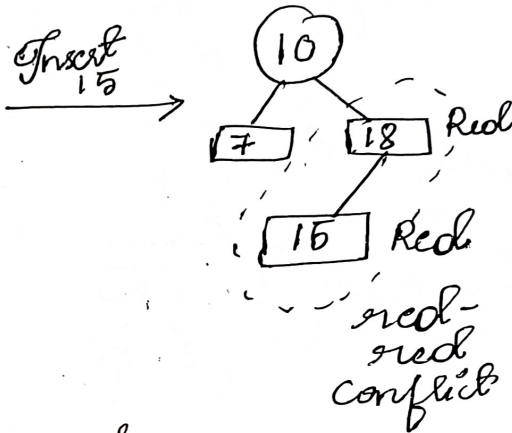 Insert
15
10
7
18
Red
15
Red
red-
red
conflict